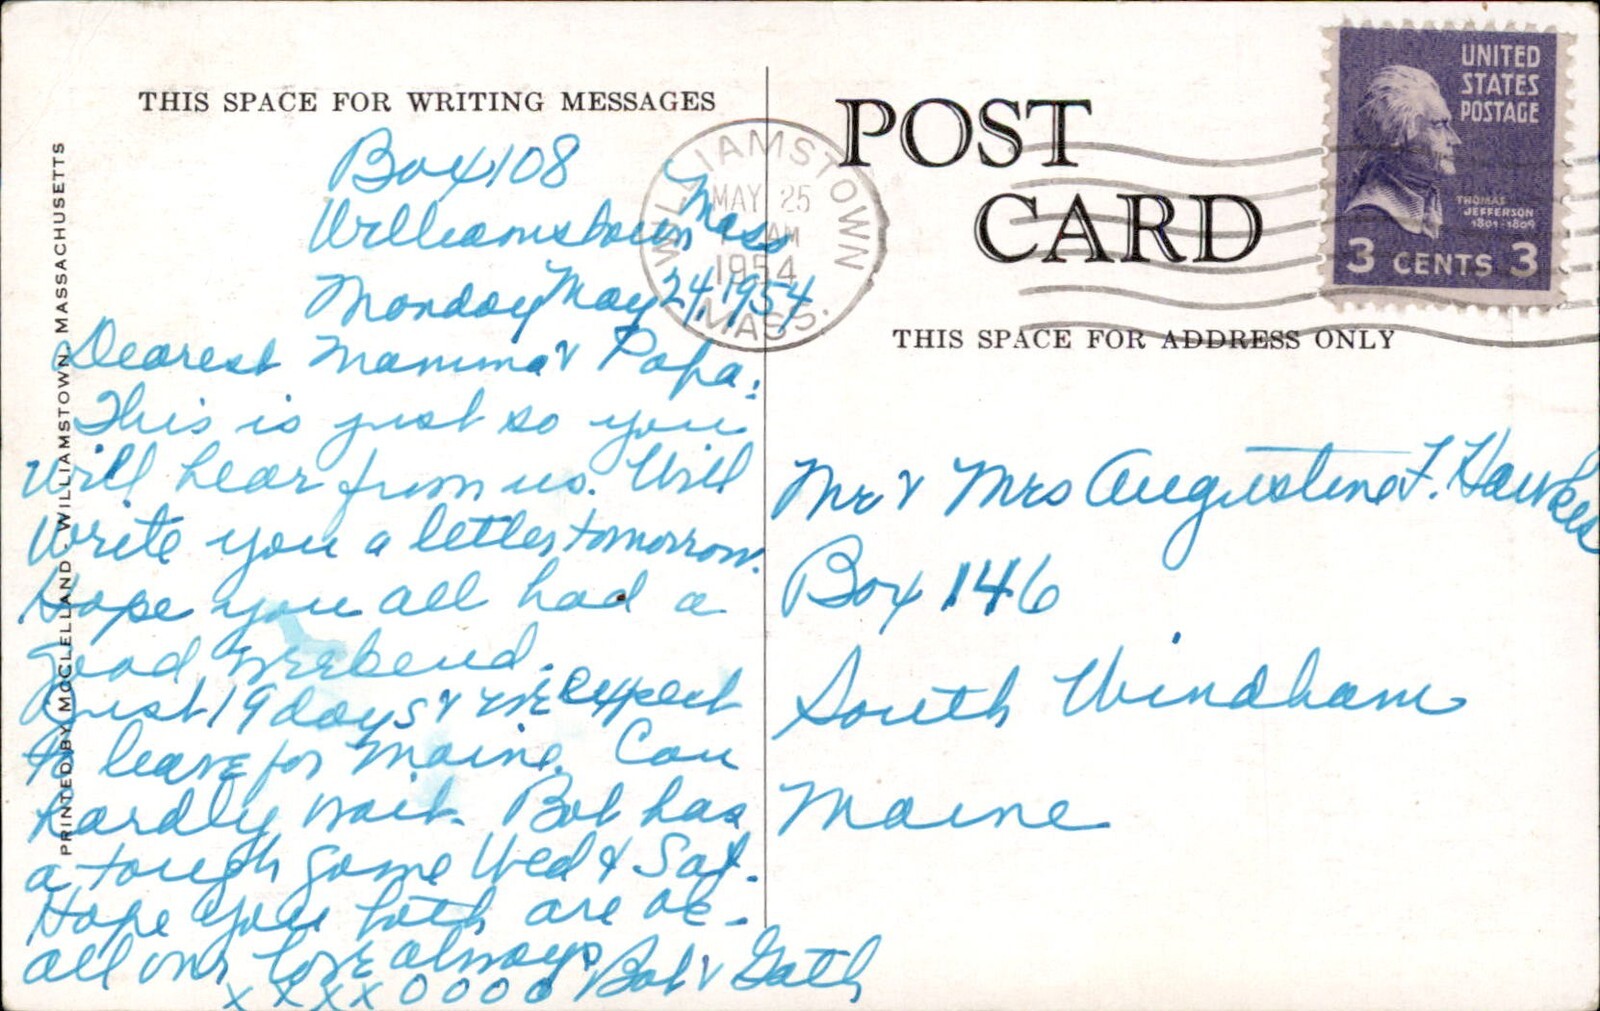 THIS SPACE FOR WRITING MESSAGES
Box 108
Williamstown Mass
Monday May 24, 1954
Dearest Mamma & Papa:
This is just so you
will hear from us. Will
write you a letter tomorrow.
Hope you all had a
good weekend.
Just 19 days & we expect
to leave for Maine. Can
hardly wait. Bob has
a tough game Wed & Sat.
Hope you both are ok-
all our love always Bob &
xxxx0000
PRINTED BY MCCLELLAND, WILLIAMSTOWN, MASSACHUSETTS
WILLIAMSTOWN
MAY 25
AM
1954
MASS.
POST
CARD
UNITED
STATES
POSTAGE
THOMAS
JEFFERSON
1801-1809
3 CENTS 3
THIS SPACE FOR ADDRESS ONLY
Mr & Mrs Augustine F. Hawkes
Box 146
South Windham
Maine